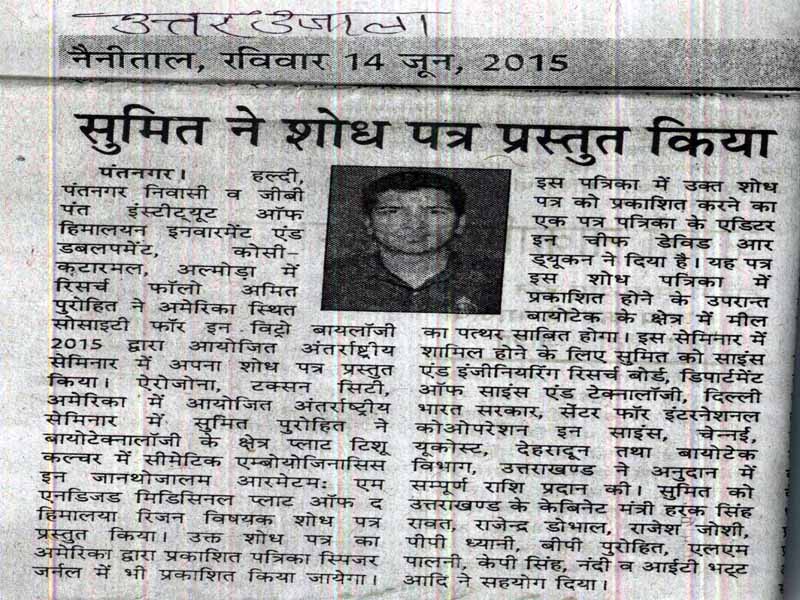 उत्तर उजाला
नैनीताल, रविवार 14 जून, 2015
सुमित ने शोध पत्र प्रस्तुत किया
पंतनगर। हल्दी,
पंतनगर निवासी व जीबी
पंत इंस्टीट्यूट ऑफ
हिमालयन इनवारमेंट एंड
डबलपमेंट, कोसी-
कटारमल, अल्मोड़ा में
रिसर्च फॉलो अमित
पुरोहित ने अमेरिका स्थित
सोसाइटी फॉर इन विट्रो बायलॉजी
2015 द्वारा आयोजित अंतर्राष्ट्रीय
सेमिनार में अपना शोध पत्र प्रस्तुत
किया। ऐरोजोना, टक्सन सिटी,
अमेरिका में आयोजित अंतर्राष्ट्रीय
सेमिनार में सुमित पुरोहित ने
बायोटेक्नालॉजी के क्षेत्र प्लाट टिशू
कल्चर में सीमेटिक एम्बोयोजिनासिस
इन जानथोजालम आरमेटमः एम
एनडिजड मिडिसिनल प्लाट ऑफ द
हिमालया रिजन विषयक शोध पत्र
प्रस्तुत किया। उक्त शोध पत्र का
अमेरिका द्वारा प्रकाशित पत्रिका स्पिजर
जर्नल में भी प्रकाशित किया जायेगा।
इस पत्रिका में उक्त शोध
पत्र को प्रकाशित करने का
एक पत्र पत्रिका के एडिटर
इन चीफ डेविड आर
ड्यूकन ने दिया है। यह पत्र
इस शोध पत्रिका में
प्रकाशित होने के उपरान्त
बायोटेक के क्षेत्र में मील
का पत्थर साबित होगा। इस सेमिनार में
शामिल होने के लिए सुमित को साइंस
एंड इंजीनियरिंग रिसर्च बोर्ड, डिपार्टमेंट
ऑफ साइंस एंड टेक्नालॉजी, दिल्ली
भारत सरकार, सेंटर फॉर इंटरनेशनल
कोओपरेशन इन साइंस, चेन्नई,
यूकोस्ट, देहरादून तथा बायोटेक
विभाग, उत्तराखण्ड ने अनुदान में
सम्पूर्ण राशि प्रदान की। सुमित को
उत्तराखण्ड के केबिनेट मंत्री हरक सिंह
रावत, राजेन्द्र डोभाल, राजेश जोशी,
पीपी ध्यानी, बीपी पुरोहित, एलएम
पालनी, केपी सिंह, नंदी व आईटी भट्ट
आदि ने सहयोग दिया।